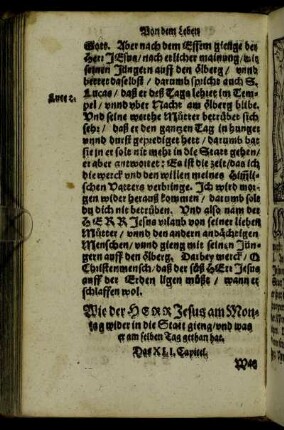 Von dem Leben
Gott. Aber nach dem Essen gienge der
Herr JEsus / nach etlicher mainung / mit
seinen Jüngern auff den ölberg / vnnd
bettet daselbst / darumb spricht auch S.
Lucas / daß er deß Tags lehret im Tem-
Luce 2.
pel / vnnd vber Nacht am ölberg blibe.
Vnd seine werthe Mütter betrübet sich
sehr / daß er den gantzen Tag in hunger
vnnd durst geprediget hett / darumb bat
sie jn er solt nit mehr in die Statt gehen /
er aber antwortet: Es ist die zeit / das ich
die werck vnd den willen meines Him̃li-
schen Vatters verbringe. Ich wird mor-
gen wider herauß kommen / darumb solt
du dich nit betrüben. Vnd also nam der
HERR Jesus vrlaub von seiner lieben
Mütter / vnnd den andern andächtigen
Menschen / vnnd gieng mit seinen Jün-
gern auff den ölberg. Darbey merck / O
Christenmensch / daß der süß HErr Jesus
auff der Erden ligen müßte / wann er
schlaffen wol.
Wie der HERR Jesus am Mon-
tag wider in die Statt gieng / vnd was
er am selben Tag gethan hat.
Das XLI. Capitel.
Was